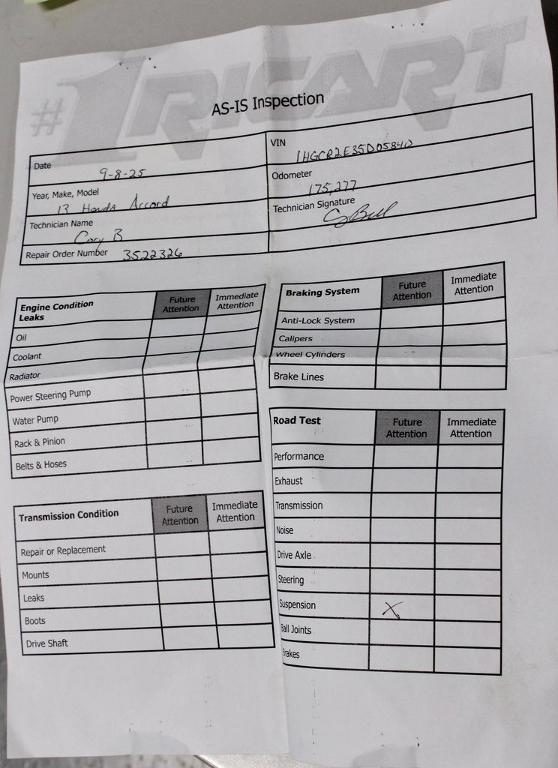 #1 RICART
AS-IS Inspection
Date 9-8-25
VIN 1HGCR2E35DA05840
Year, Make, Model 13 Honda Accord
Odometer 175,277
Technician Name Cory B
Technician Signature
Repair Order Number 3522326
Engine Condition Leaks Future Attention Immediate Attention
Oil
Coolant
Radiator
Power Steering Pump
Water Pump
Rack & Pinion
Belts & Hoses
Transmission Condition Future Attention Immediate Attention
Repair or Replacement
Mounts
Leaks
Boots
Drive Shaft
Braking System Future Attention Immediate Attention
Anti-Lock System
Calipers
Wheel Cylinders
Brake Lines
Road Test Future Attention Immediate Attention
Performance
Exhaust
Transmission
Noise
Drive Axle
Steering
Suspension X
Ball Joints
Brakes